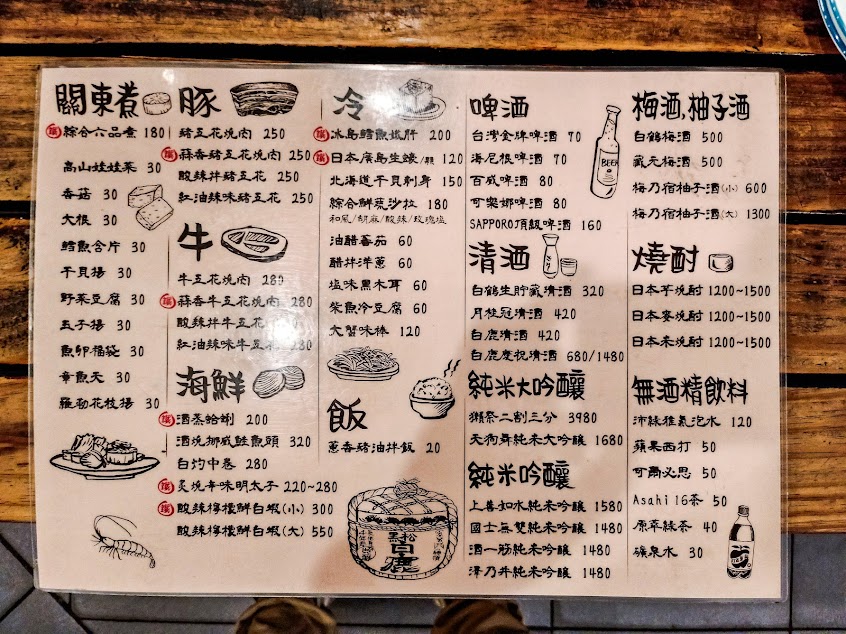 關東煮
推 綜合六品煮 180
高山娃娃菜 30
香菇 30
大根 30
鱈魚含片 30
干貝揚 30
野菜豆腐 30
五子揚 30
魚卵福袋 30
章魚天 30
羅勒花枝揚 30
豚
豬五花燒肉 250
推 蒜香豬五花燒肉 250
酸辣拌豬五花 250
紅油辣味豬五花 250
牛
牛五花燒肉 280
推 蒜香牛五花燒肉 280
酸辣拌牛五花 280
紅油辣味牛五花 280
海鮮
推 酒蒸蛤蜊 200
酒燒挪威鮭魚頭 320
白灼中卷 280
推 炙燒辛味明太子 220~280
推 酸辣檸檬鮮白蝦(小) 300
酸辣檸檬鮮白蝦(大) 550
冷
推 冰島鱈魚拔肝 200
推 日本廣島生蠔/顆 120
北海道干貝刺身 150
綜合鮮蔬沙拉 180
和風/胡麻/酸辣/玫瑰塩
油醋蕃茄 60
醋拌洋蔥 60
塩味黑木耳 60
柴魚冷豆腐 60
大蟹味棒 120
飯
蔥香豬油拌飯 20
黑松
白鹿
啤酒
台灣金牌啤酒 70
海尼根啤酒 70
百威啤酒 80
可樂娜啤酒 80
SAPPORO頂級啤酒 160
BEER
清酒
白鶴生貯藏清酒 320
月桂冠清酒 420
白鹿清酒 420
白鹿慶祝清酒 680/1480
純米大吟釀
獺祭二割三分 3980
天狗舞純米大吟釀 1680
純米吟釀
上善如水純米吟釀 1580
國士無雙純米吟釀 1480
酒一筋純米吟釀 1480
澤乃井純米吟釀 1480
梅酒,柚子酒
白鶴梅酒 500
藏元梅酒 500
梅乃宿柚子酒(小) 600
梅乃宿柚子酒(大) 1300
燒酎
日本芋燒酎 1200~1500
日本麥燒酎 1200~1500
日本米燒酎 1200~1500
無酒精飲料
沛綠雅氣泡水 120
蘋果西打 50
可爾必思 50
Asahi 16茶 50
原萃綠茶 40
礦泉水 30